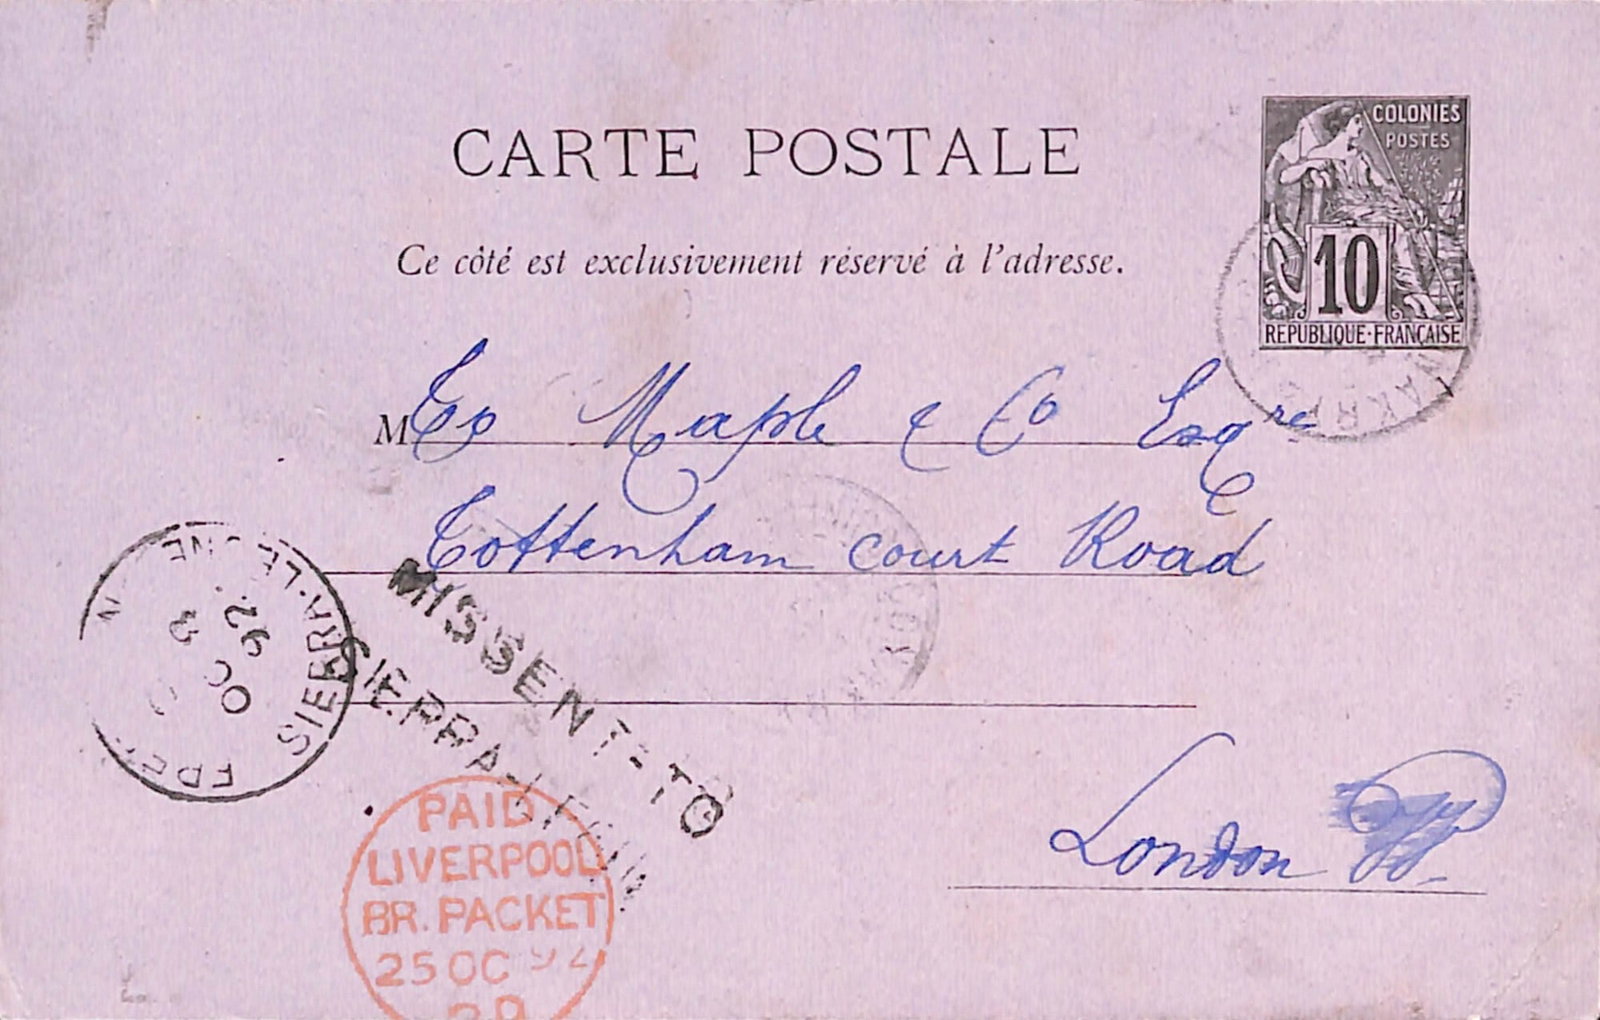 CARTE POSTALE
COLONIES
POSTES
10
REPUBLIQUE·FRANÇAISE
Ce côté est exclusivement réservé à l'adresse.
M To Maple & Co Esqre
Tottenham Court Road
London W.
MISSENT-TO
SIERRA-LEON
SIERRA-LEONE
OC
92
PAID
LIVERPOOL
BR. PACKET
25 OC 92